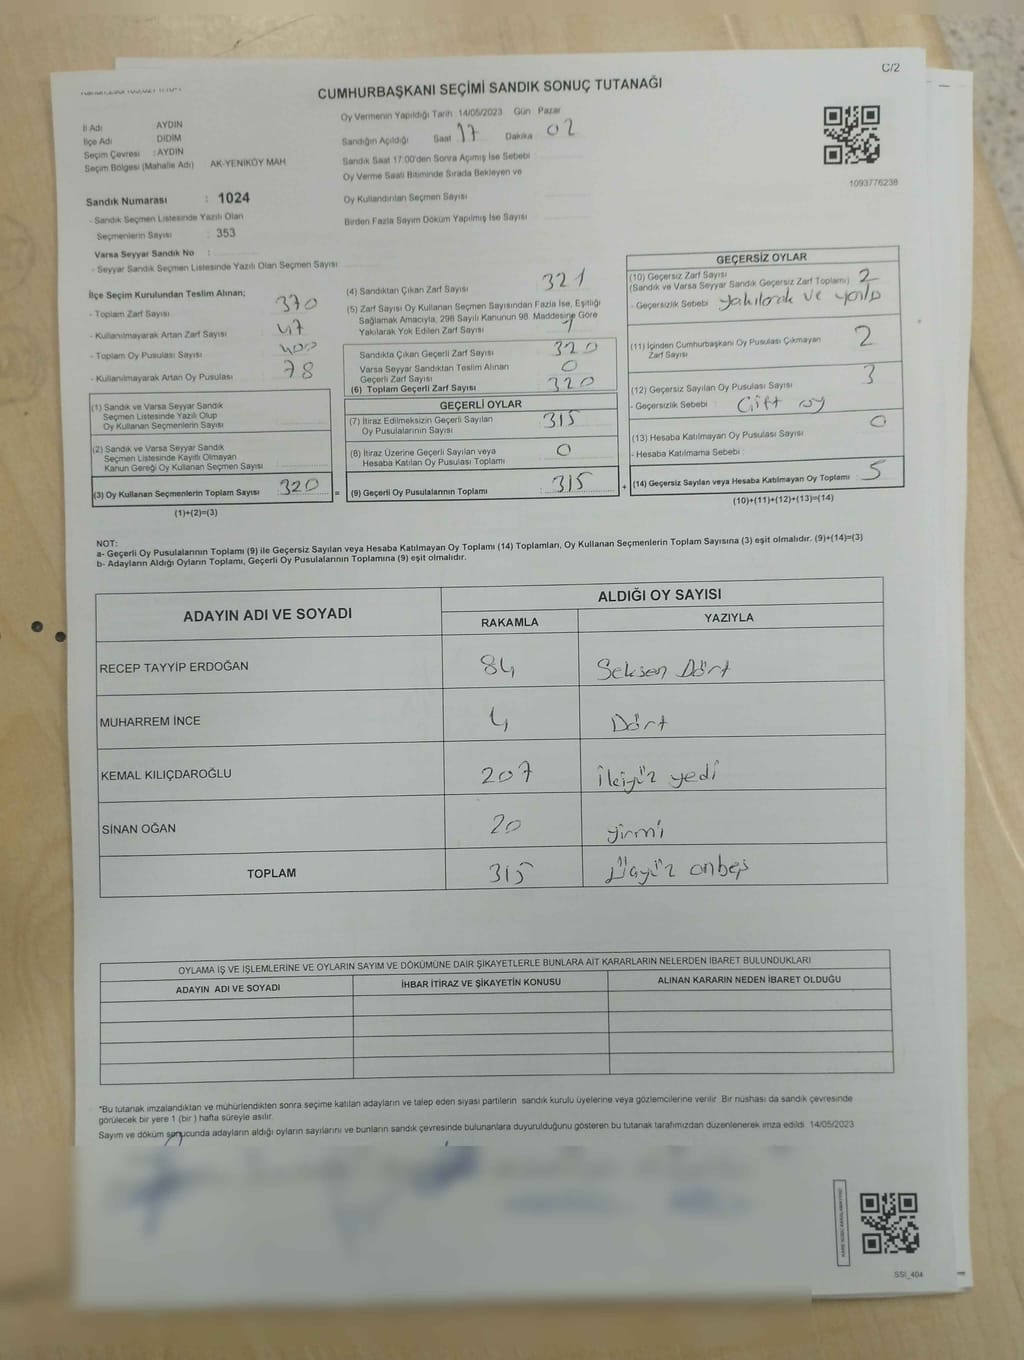 C/2
CUMHURBAŞKANI SEÇİMİ SANDIK SONUÇ TUTANAĞI
İl Adı AYDIN
İlçe Adı DİDİM
Seçim Çevresi : AYDIN
Seçim Bölgesi (Mahalle Adı) AK-YENİKÖY MAH
Oy Vermenin Yapıldığı Tarih : 14/05/2023 Gün : Pazar
Sandığın Açıldığı Saat 17 Dakika 02
Sandık Saat 17:00'den Sonra Açımış İse Sebebi
Oy Verme Saati Bitiminde Sırada Bekleyen ve
Oy Kullandırılan Seçmen Sayısı
Birden Fazla Sayım Döküm Yapılmış İse Sayısı
1093776238
Sandık Numarası : 1024
- Sandık Seçmen Listesinde Yazılı Olan
Seçmenlerin Sayısı : 353
Varsa Seyyar Sandık No :
- Seyyar Sandık Seçmen Listesinde Yazılı Olan Seçmen Sayısı
İlçe Seçim Kurulundan Teslim Alınan;
- Toplam Zarf Sayısı : 370
- Kullanılmayarak Artan Zarf Sayısı : 47
- Toplam Oy Pusulası Sayısı : 400
- Kullanılmayarak Artan Oy Pusulası : 78
(1) Sandık ve Varsa Seyyar Sandık
Seçmen Listesinde Yazılı Olup
Oy Kullanan Seçmenlerin Sayısı
(2) Sandık ve Varsa Seyyar Sandık
Seçmen Listesinde Kayıtlı Olmayan
Kanun Gereği Oy Kullanan Seçmen Sayısı
(3) Oy Kullanan Seçmenlerin Toplam Sayısı : 320
(1)+(2)=(3)
(4) Sandıktan Çıkan Zarf Sayısı 321
(5) Zarf Sayısı Oy Kullanan Seçmen Sayısından Fazla İse, Eşitliği
Sağlamak Amacıyla, 298 Sayılı Kanunun 98. Maddesine Göre
Yakılarak Yok Edilen Zarf Sayısı 1
Sandıkta Çıkan Geçerli Zarf Sayısı 320
Varsa Seyyar Sandıktan Teslim Alınan
Geçerli Zarf Sayısı 0
(6) Toplam Geçerli Zarf Sayısı 320
GEÇERLİ OYLAR
(7) İtiraz Edilmeksizin Geçerli Sayılan
Oy Pusulalarının Sayısı 315
(8) İtiraz Üzerine Geçerli Sayılan veya
Hesaba Katılan Oy Pusulası Toplamı 0
= (9) Geçerli Oy Pusulalarının Toplamı : 315
GEÇERSİZ OYLAR
(10) Geçersiz Zarf Sayısı
(Sandık ve Varsa Seyyar Sandık Geçersiz Zarf Toplamı) 2
- Geçersizlik Sebebi : yakılarak ve
(11) İçinden Cumhurbaşkanı Oy Pusulası Çıkmayan
Zarf Sayısı 2
(12) Geçersiz Sayılan Oy Pusulası Sayısı 3
- Geçersizlik Sebebi : Çift oy
(13) Hesaba Katılmayan Oy Pusulası Sayısı 0
- Hesaba Katılmama Sebebi :
+ (14) Geçersiz Sayılan veya Hesaba Katılmayan Oy Toplamı : 5
(10)+(11)+(12)+(13)=(14)
NOT:
a- Geçerli Oy Pusulalarının Toplamı (9) ile Geçersiz Sayılan veya Hesaba Katılmayan Oy Toplamı (14) Toplamları, Oy Kullanan Seçmenlerin Toplam Sayısına (3) eşit olmalıdır. (9)+(14)=(3)
b- Adayların Aldığı Oyların Toplamı, Geçerli Oy Pusulalarının Toplamına (9) eşit olmalıdır.
ADAYIN ADI VE SOYADI ALDIĞI OY SAYISI
RAKAMLA YAZIYLA
RECEP TAYYİP ERDOĞAN 84 Seksen Dört
MUHARREM İNCE 4 Dört
KEMAL KILIÇDAROĞLU 207 İkiyüz yedi
SİNAN OĞAN 20 yirmi
TOPLAM 315 Üçyüz onbeş
OYLAMA İŞ VE İŞLEMLERİNE VE OYLARIN SAYIM VE DÖKÜMÜNE DAİR ŞİKAYETLERLE BUNLARA AİT KARARLARIN NELERDEN İBARET BULUNDUKLARI
ADAYIN ADI VE SOYADI İHBAR İTİRAZ VE ŞİKAYETİN KONUSU ALINAN KARARIN NEDEN İBARET OLDUĞU
*Bu tutanak imzalandıktan ve mühürlendikten sonra seçime katılan adayların ve talep eden siyasi partilerin sandık kurulu üyelerine veya gözlemcilerine verilir. Bir nüshası da sandık çevresinde
görülecek bir yere 1 (bir ) hafta süreyle asılır.
Sayım ve döküm sonucunda adayların aldığı oyların sayılarını ve bunların sandık çevresinde bulunanlara duyurulduğunu gösteren bu tutanak tarafımızdan düzenlenerek imza edildi. 14/05/2023
SSİ_404